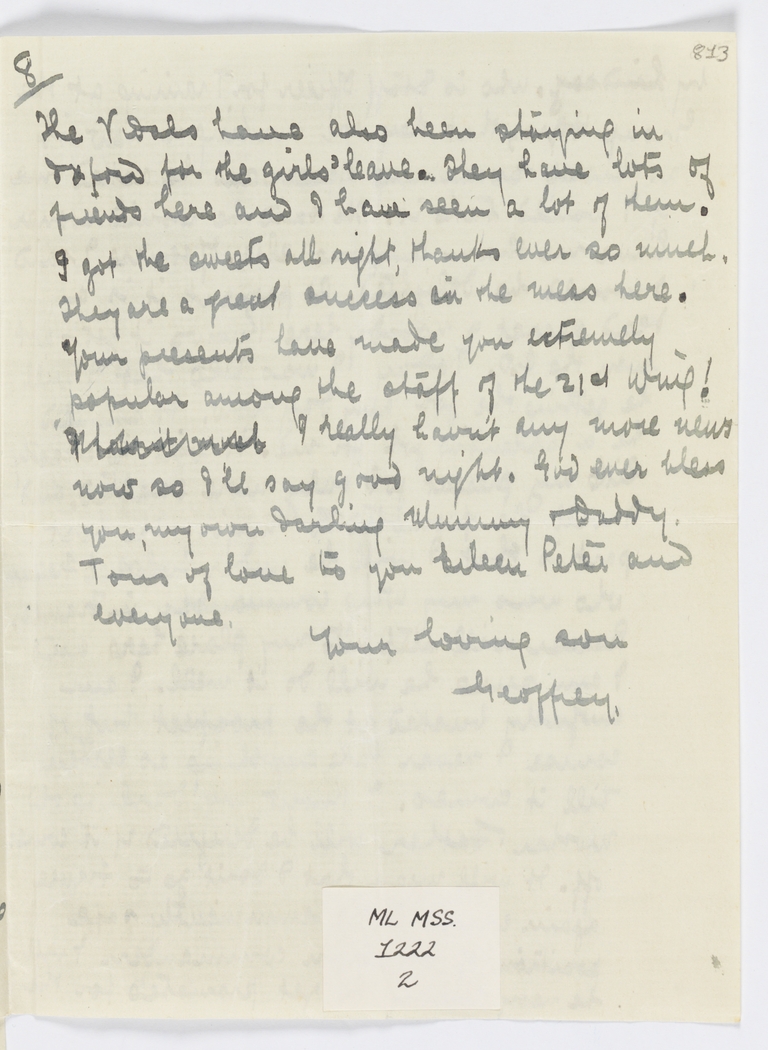 813
8/
The Vidals have also been staying in
Oxford for the girls' leave. They have lots of
friends here and I have seen a lot of them.
I got the sweets all right, thanks ever so much.
They are a great success in the mess here.
Your presents have made you extremely
popular among the staff of the 21st Wing!
I really haven't any more news
now so I'll say good night. God ever bless
you, my own darling Mummy & Daddy.
Tons of love to you Eileen Peter and
everyone.
Your loving son
Geoffrey.
ML MSS.
1222
2